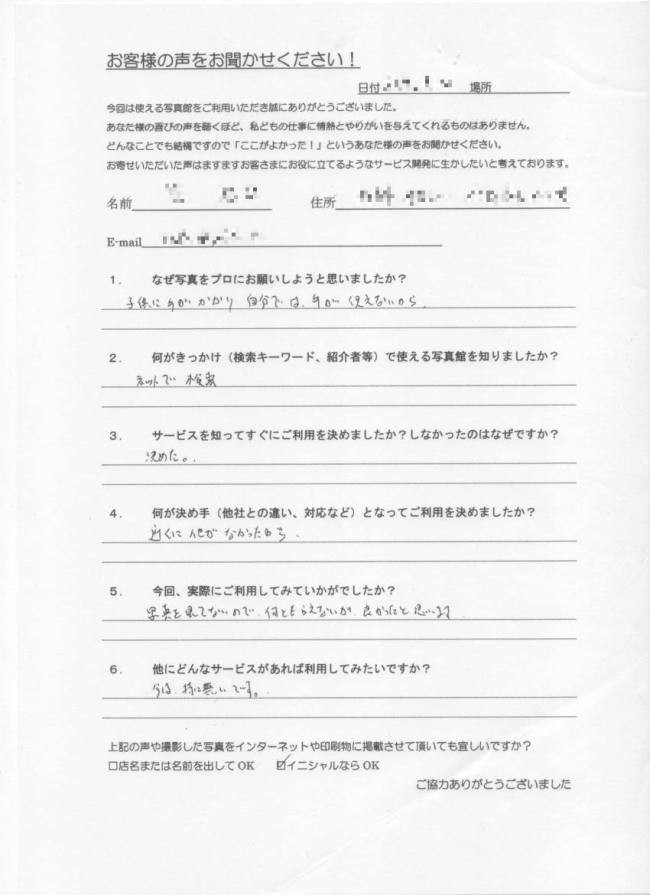 お客様の声をお聞かせください！
日付 場所
今回は使える写真館をご利用いただき誠にありがとうございました。
あなた様の喜びの声を聴くほど、私どもの仕事に情熱とやりがいを与えてくれるものはありません。
どんなことでも結構ですので「ここがよかった！」というあなた様の声をお聞かせください。
お寄せいただいた声はますますお客さまにお役に立てるようなサービス開発に生かしたいと考えております。
名前 住所
E-mail
1. なぜ写真をプロにお願いしようと思いましたか？
子供に手がかかり 自分では、手が使えないから
2. 何がきっかけ（検索キーワード、紹介者等）で使える写真館を知りましたか？
ネットで 検索
3. サービスを知ってすぐにご利用を決めましたか？しなかったのはなぜですか？
決めた。
4. 何が決め手（他社との違い、対応など）となってご利用を決めましたか？
近くに 他が なかった
5. 今回、実際にご利用してみていかがでしたか？
写真を見てないので、何とも言えないが、良かったと思います
6. 他にどんなサービスがあれば利用してみたいですか？
今は、特に無いです。
上記の声や撮影した写真をインターネットや印刷物に掲載させて頂いても宜しいですか？
□店名または名前を出してOK ☑イニシャルならOK
ご協力ありがとうございました